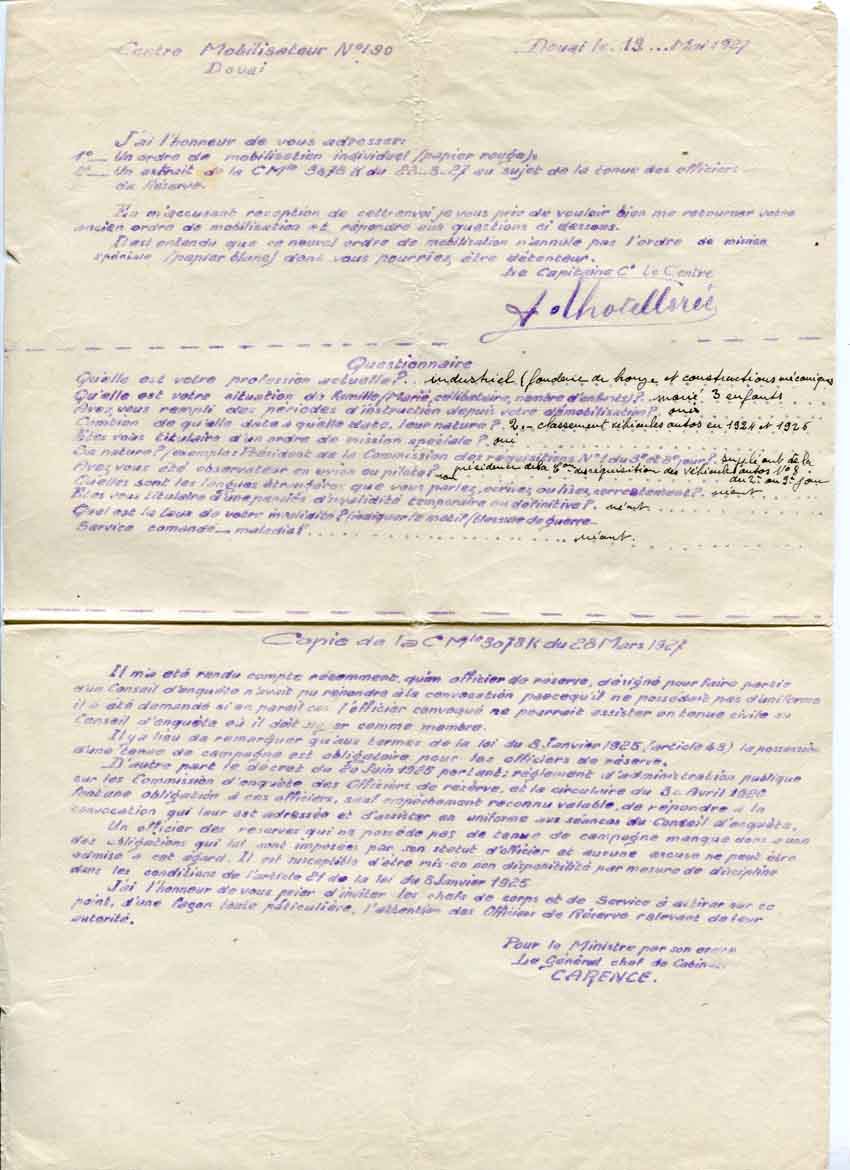 Centre Mobilisateur N°190
Douai
Douai le 19 ... Mai 1927
J'ai l'honneur de vous adresser:
1°_ Un ordre de mobilisation individuel (papier rouge).
2°_ Un extrait de la CMlle 3078 K du 28-3-27 au sujet de la tenue des officiers
de Réserve.
En m'accusant reception de cet envoi je vous prie de vouloir bien me retourner votre
ancien ordre de mobilisation et répondre aux questions ci dessous.
Il est entendu que ce nouvel ordre de mobilisation n'annule pas l'ordre de mission
spéciale (papier blanc) dont vous pourriez être détenteur.
Le Capitaine Ct Le Centre
Questionnaire
Qu'elle est votre profession actuelle?.. industriel (fonderie de bronze et constructions mécaniques
Qu'elle est votre situation de famille (Marié, célibataire, nombre d'enfants)? marié 3 enfants
Avez vous rempli des périodes d'instruction depuis votre démobilisation? oui
Combien de qu'elle date à qu'elle date, leur nature? 2.- classement véhicules autos en 1924 et 1926
Etes vous titulaire d'un ordre de mission spéciale? oui
Sa nature? (exemples Président de la Commission des réquisitions N°1 du 3e au 8e jour? suppléant de la
président de la Con de réquisition des véhicules autos N° 8
du 2e au 9e jour
Avez vous été observateur en avion ou pilote? non
Quelles sont les langues étrangères que vous parlez, écrivez ou lisez, correctement? néant
Etes vous titulaire d'une pension d'invalidité temporaire ou définitive? néant
Quel est le taux de votre invalidité? (indiquer le motif (blessure de guerre_
Service comandé_ maladie)? néant.
Copie de la C Mlle 3078K du 28 Mars 1927
Il m'a eté rendu compte récemment, qu'un officier de réserve, désigné pour faire partie
d'un Conseil d'enquête n'avait pu répondre à la convocation parcequ'il ne possédait pas d'uniforme
il a été demandé si en pareil cas l'officier convoqué ne pourrait assister en tenue civile au
Conseil d'enquête où il doit siéger comme membre.
Il y a lieu de remarquer qu'aux termes de la loi du 8 Janvier 1925 (article 43) la possession
d'une tenue de campagne est obligatoire pour les officiers de réserve.
D'autre part le décret du 20 Juin 1925 portant, réglement d'administration publique
sur les Commission d'enquête des Officiers de réserve, et la circulaire du Avril 1926
font une obligation à ces officiers, sauf empêchement reconnu valable, de répondre à la
convocation qui leur est adressée et d'assister en uniforme aux séances du Conseil d'enquête.
Un officier des reserves qui ne possède pas de tenue de campagne manque donc a une
des obligations qui lui sont imposées par son statut d'officier et aucune excuse ne peut être
admise à cet égard. Il est susceptible d'être mis en non disponibilité par mesure de discipline
dans les conditions de l'article 21 de la loi du 8 Janvier 1925.
J'ai l'honneur de vous prier d'inviter les chefs de corps et de Service à attirer sur ce
point, d'une façon toute particulière, l'attention des Officier de Réserve relevant de leur
autorité.
Pour le Ministre par son ordre
Le Général chef de Cabinet
CARENCE.